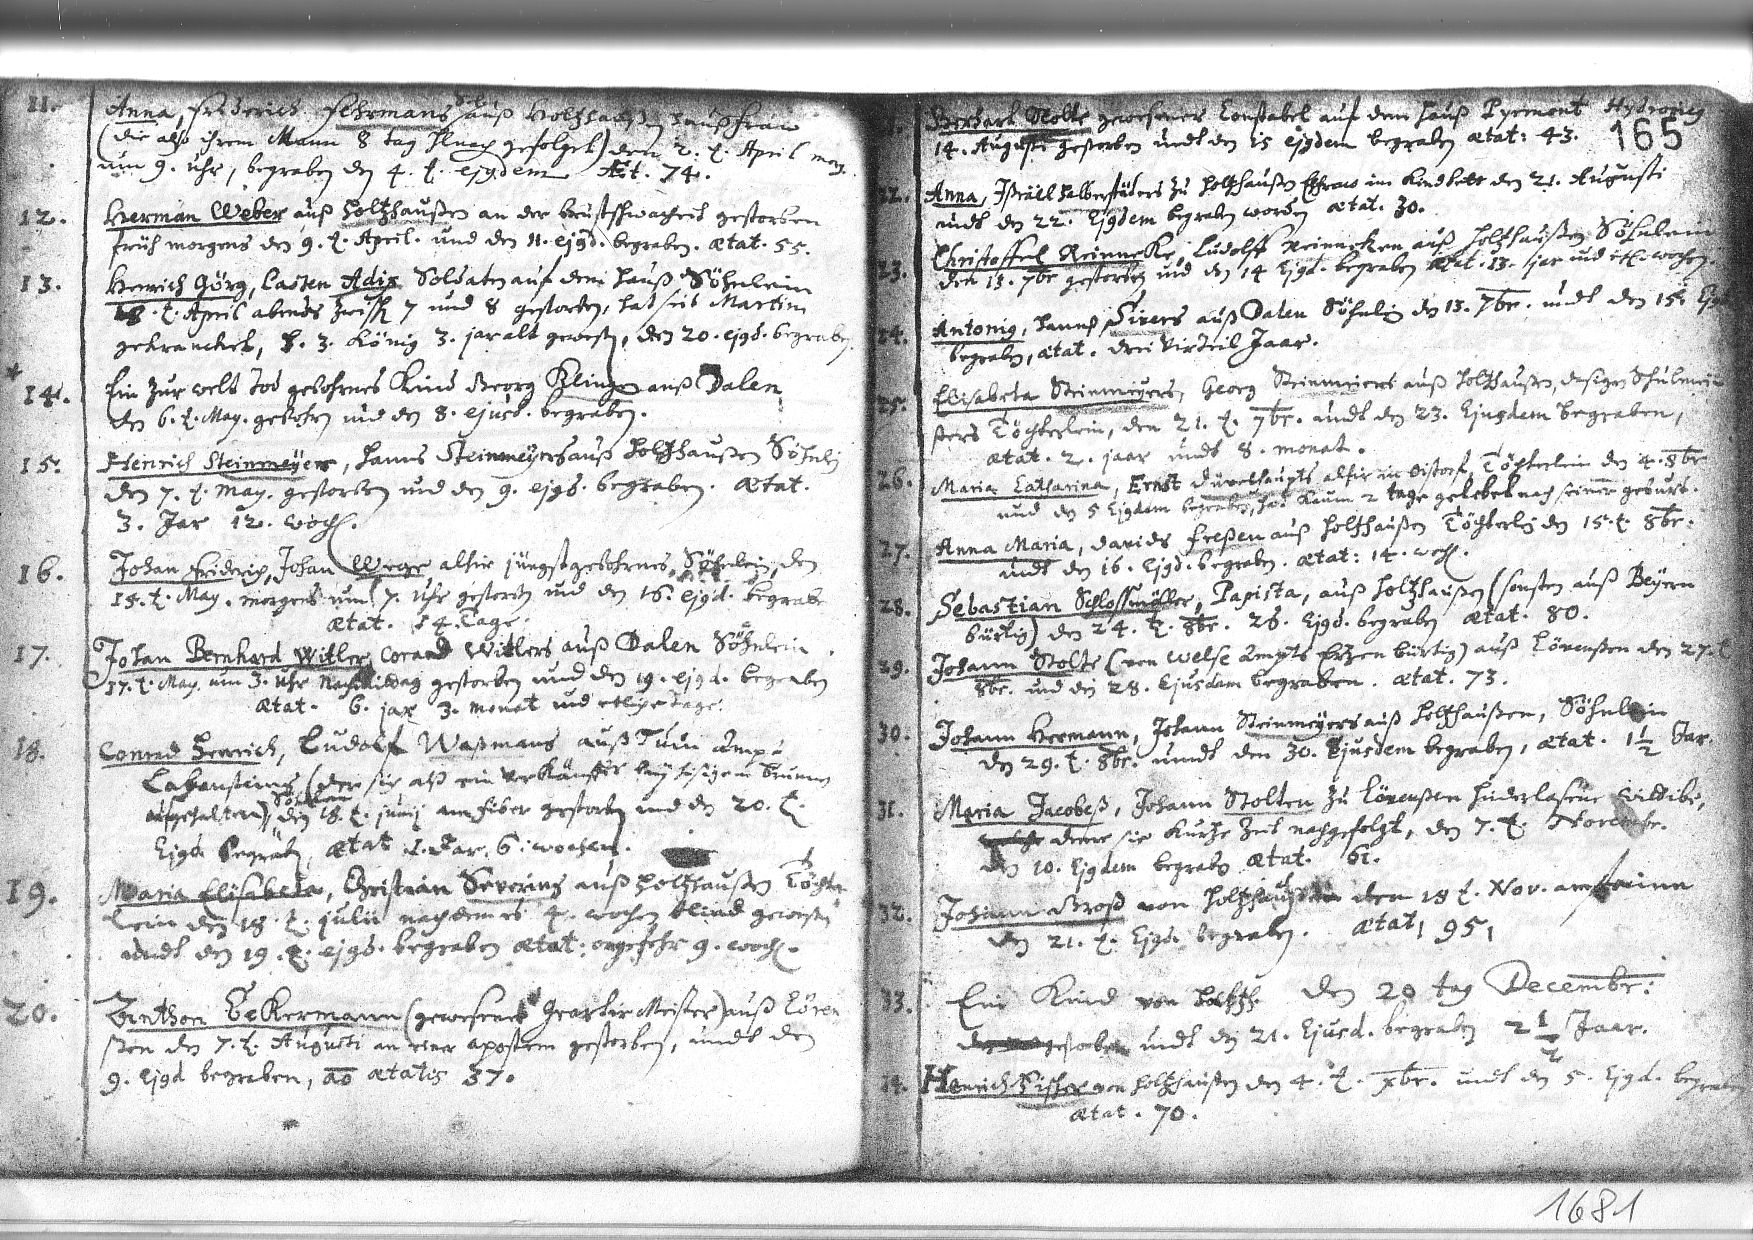 11. Anna, Friderich Fehrmans auß Holtzhaußen haußfrau
(die also ihrem Mann 8 tag hernach gefolget) den 2. t. April
um 9. Uhr, begraben den 4. t. ejusdem Æt. 74.
12. Herman Weber auß Holtzhaußen an der gestorben
früh morgens den 9. t. April. und den 11. ejusd. begraben. ætat. 55.
13. Henrich Görg, Soldaten auf dem Hauß Söhnlein
18. t. April abends zwisch 7 und 8 gestorben, hat seit Martini
gekrancket, H. 3. König 3. jar alt gewesen, den 20. ejusd. begraben.
14. Ein zur welt tod gebohrnes Kind Georg auß Dalen
den 6. t. May. gebohren und den 8. ejusd. begraben.
15. Henrich Steinmeyer, Hanns Steinmeyers auß Holtzhaußen Söhnlein
den 7. t. May. gestorben und den 9. ejusd. begraben. Ætat.
3. Jar 12. woch.
16. Johan Friderich, Johan Wege alhir jüngst gebohrnes Söhnlein, den
15. t. May. morgens um 7. Uhr gestorben und den 16. ejusd. begraben
ætat. 14. Tage.
17. Johan Bernhard Witler, Conrad Witlers auß Dalen Söhnlein
17. t. May. um 3. Uhr Nachmittag gestorben und den 19. ejusd. begraben
ætat. 6. jar 3. monat und etliche Tage.
18. Conrad Henrich, Ludolf Waßmans auß Ampt
Lauensteins (der hir alß ein Verkäuffer beym hisigem brunnen
aufgehalten) Söhnlein den 18. t. junij am fiber gestorben und den 20. t.
Ejusd. begraben, ætat 1. Jar. 6. wochen.
19. Maria Elisabeta, Christian Severins auß Holtzhaußen Töchter
lein den 18. t. julii nachdem es 4. wochen blind gewesen
undt den 19. t. ejusd. begraben ætat. ongefehr 9. woch.
20. Anthon Eckermann (gewesener Quartir Meister) auß Lören
ßen den 7. t. Augusti an einer apostem gestorben, undt den
9. Ejusd begraben, ao ætatis 37.
165
Gerhart Nolte gewesener Constabel auf dem Hauß Pyrmont Hydropicus
14. Augusti gestorben undt den 15 ejusdem begraben ætat: 43.
22. Anna, Israël Halberstäters zu Holtzhaußen Ehfraw im Kindbett den 21. Augusti
undt den 22. Ejusdem begraben worden ætat. 30.
23. Christoffel Reinneke, Ludolff Reinneken auß Holtzhaußen Söhnlein
den 13. 7br gestorben und den 14 Ejusd. begraben ætat. 13. jar und wochen.
24. Antonius, Hanns Sivers auß Dalen Söhnlein den 13. 7br. undt den 15.
begraben, ætat. drei Virteil Jaar.
25. Elisabeta Steinmeyers, Georg Steinmeiers auß Holtzhaußen, desigen Schulmei
sters Töchterlein, den 21. t. 7br. undt den 23. Ejusdem begraben,
ætat. 2. jaar undt 8. monat.
26. Maria Catharina, Ernst Düvelhaupts alhir in Oistorf, Töchterlein den 4. 8br
und den 5 Ejusdem begraben, hat kaum 2 tage gelebet nach seiner geburt.
27. Anna Maria, Davids Freßen auß Holtzhaußen Töchterlein den 15. t. 8br.
undt den 16. Ejusd. begraben. ætat: 14. woch.
28. Sebastian Schloßmöller, Papista, auß Holtzhaußen (sonsten auß Beyern
bürtig) den 24. t. 8br. 26. Ejusd. begraben ætat. 80.
29. Johann Nolte (von Welse Ampts Ertzen bürtig) auß Lörenßen den 27. t
8br. und den 28. Ejusdem begraben. ætat. 73.
30. Johann Hermann, Johann Steinmeyers auß Holtzhaußen, Söhnlein
den 29. t. 8br. undt den 30. Ejusdem begraben, ætat. 1 1/2 Jar.
31. Maria Jacobeß, Johann Nolten zu Lörenßen hinderlasene
deme sie kurtze Zeit nachgefolgt, den 7. t. Novembr.
den 10. Ejusdem begraben ætat. 61.
32. Johann Groß von Holtzhaußen den 18 t. Nov.
den 21. t. Ejusd. begraben. ætat, 95,
33. Ein Kind von Holtzh. den 20 tag Decembr:
gestorben undt den 21. Ejusd. begraben 2 1/2 Jaar.
34. Henrich Fischer von Holtzhaußen den 4. t. xbr. undt den 5. Ejusd. begraben
ætat. 70.
1681